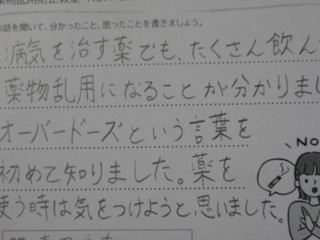 話を聞いて、分かったこと、思ったことを書きましょう。
病気を治す薬でも、たくさん飲ん
薬物乱用になることが分かりまし
オーバードーズという言葉を
初めて知りました。薬を
使う時は気をつけようと思いました。
NO